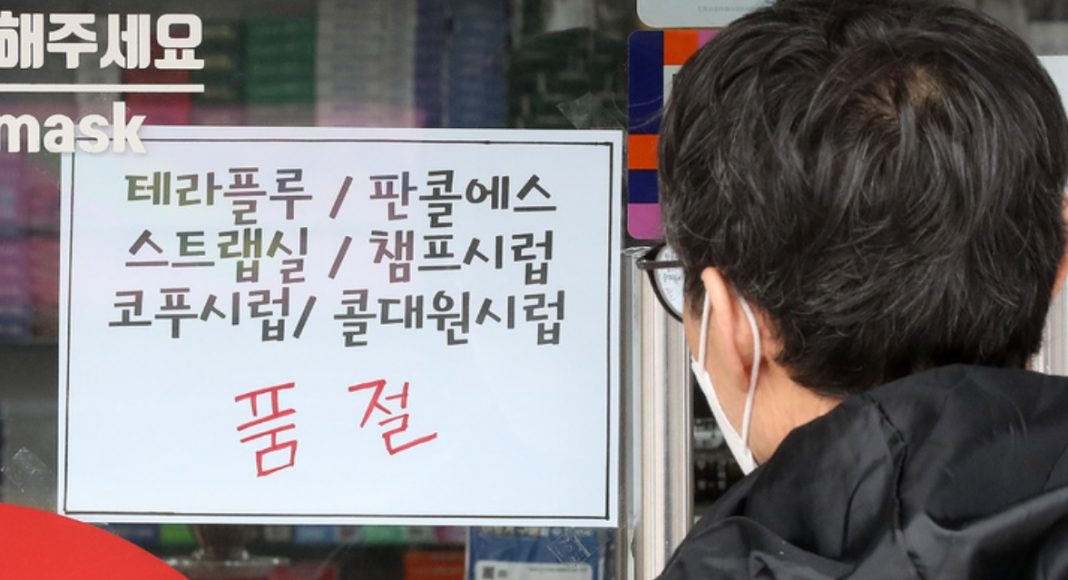 해주세요
mask
테라플루 / 판콜에스
스트랩실 / 챔프시럽
코푸시럽/ 콜대원시럽
품 절